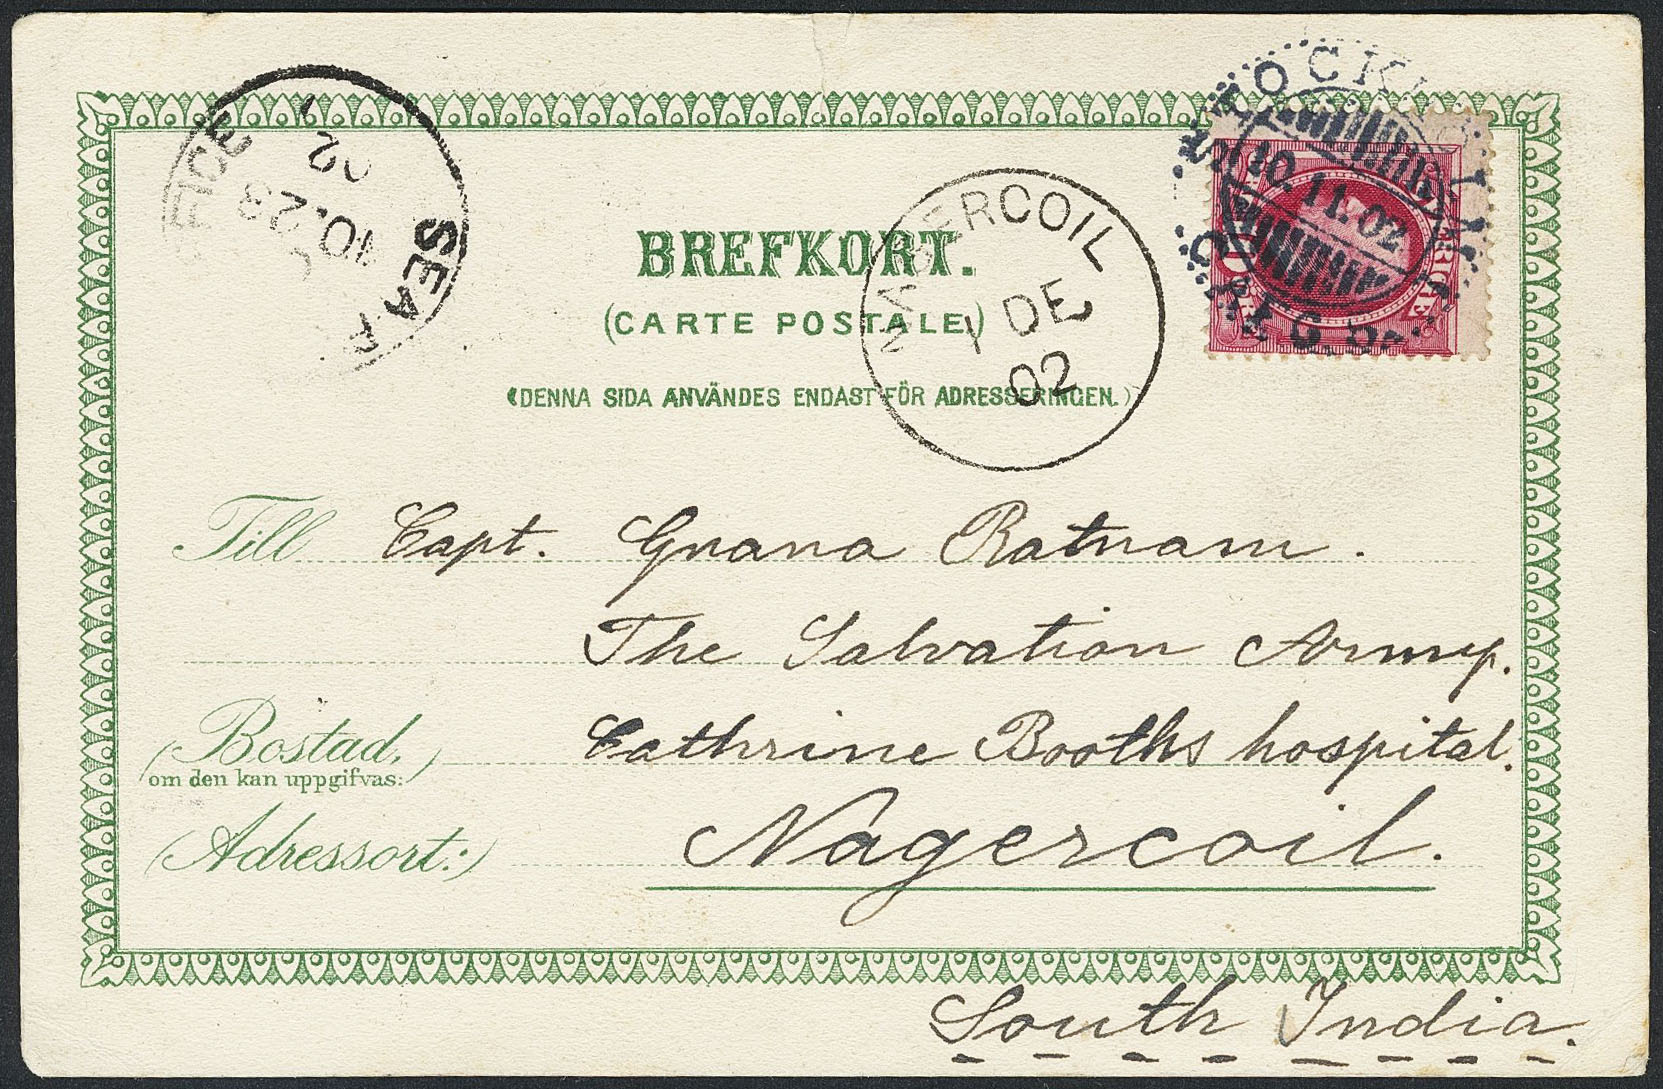 STOCKHOLM
10.11.02
SEA
10.23
02
NAGERCOIL
1 DE
02
BREFKORT.
(CARTE POSTALE)
(DENNA SIDA ANVÄNDES ENDAST FÖR ADRESSERINGEN.)
Till Capt. Gnana Ratnam.
The Salvation Army.
(Bostad, Cathrine Booths hospital.
om den kan uppgifvas:)
(Adressort:) Nagercoil.
South India.